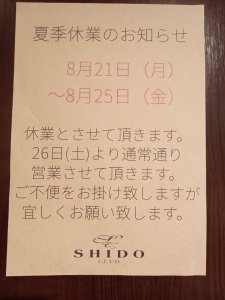 夏季休業のお知らせ
8月21日（月）
～8月25日（金）
休業とさせて頂きます。
26日(土)より通常通り
営業させて頂きます。
ご不便をお掛け致しますが
宜しくお願い致します。
SHIDO
CLUB